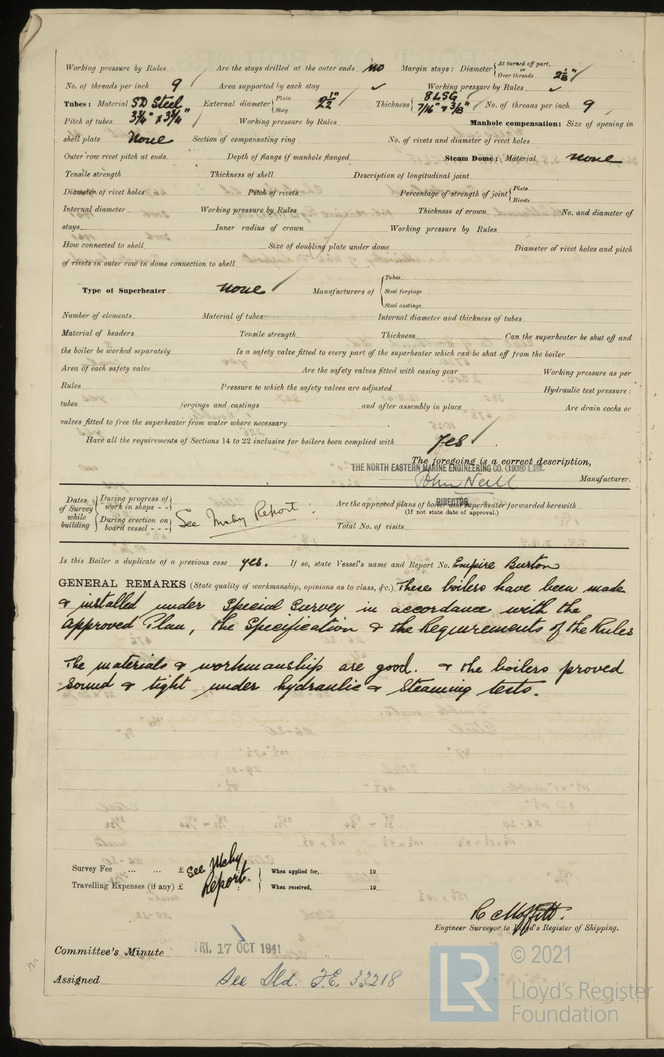 Working pressure by Rules Are the stays drilled at the outer ends no Margin stays: Diameter { At turned off part, or Over threads 2⅛"
No. of threads per inch 9 Area supported by each stay Working pressure by Rules
Tubes: Material SD Steel External diameter { Plain Stay 2½" Thickness { 8 LSG 7/16" & 3/8" No. of threads per inch 9
Pitch of tubes 3¾" x 3¾" Working pressure by Rules Manhole compensation: Size of opening in
shell plate None Section of compensating ring No. of rivets and diameter of rivet holes
Outer row rivet pitch at ends Depth of flange if manhole flanged Steam Dome: Material none
Tensile strength Thickness of shell Description of longitudinal joint
Diameter of rivet holes Pitch of rivets Percentage of strength of joint { Plate Rivets
Internal diameter Working pressure by Rules Thickness of crown No. and diameter of
stays Inner radius of crown Working pressure by Rules
How connected to shell Size of doubling plate under dome Diameter of rivet holes and pitch
of rivets in outer row in dome connection to shell
Type of Superheater none Manufacturers of { Tubes Steel forgings Steel castings
Number of elements Material of tubes Internal diameter and thickness of tubes
Material of headers Tensile strength Thickness Can the superheater be shut off and
the boiler be worked separately Is a safety valve fitted to every part of the superheater which can be shut off from the boiler
Area of each safety valve Are the safety valves fitted with easing gear Working pressure as per
Rules Pressure to which the safety valves are adjusted Hydraulic test pressure:
tubes forgings and castings and after assembly in place Are drain cocks or
valves fitted to free the superheater from water where necessary
Have all the requirements of Sections 14 to 22 inclusive for boilers been complied with Yes
The foregoing is a correct description,
THE NORTH EASTERN MARINE ENGINEERING CO. (1938) LTD.
John Neill Manufacturer.
DIRECTOR
Dates of Survey while building { During progress of work in shops - - During erection on board vessel - - - } See Mchy Report. Are the approved plans of boiler and superheater forwarded herewith
(If not state date of approval.)
Total No. of visits
Is this Boiler a duplicate of a previous case yes. If so, state Vessel's name and Report No. Empire Burton
GENERAL REMARKS (State quality of workmanship, opinions as to class, &c.) These boilers have been made
& installed under Special Survey in accordance with the
approved Plan, the Specification & the Requirements of the Rules
The materials & workmanship are good. & the boilers proved
sound & tight under hydraulic & steaming tests.
Survey Fee ... ... £ See Mchy When applied for, 19
Travelling Expenses (if any) £ Report. When received, 19
R Moffitt.
Engineer Surveyor to Lloyd's Register of Shipping.
Committee's Minute FRI. 17 OCT 1941
Assigned See Dld. F.E. 33218
© 2021
LR Lloyd's Register
Foundation